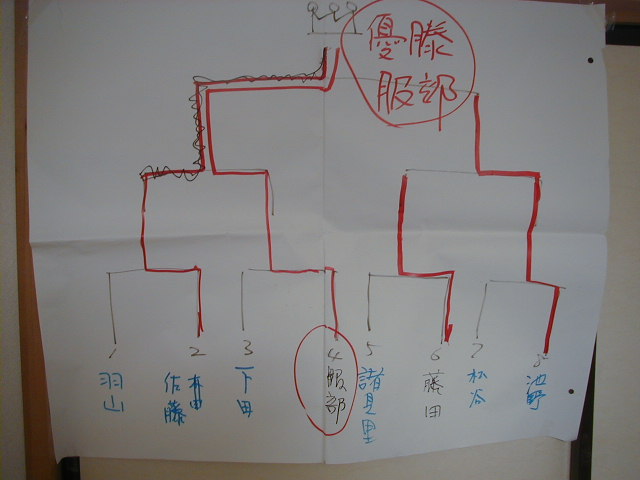 優勝
服部
1
2
3
4
5
6
7
8
羽山
佐藤
下田
服部
諸見里
藤田
松谷
池野